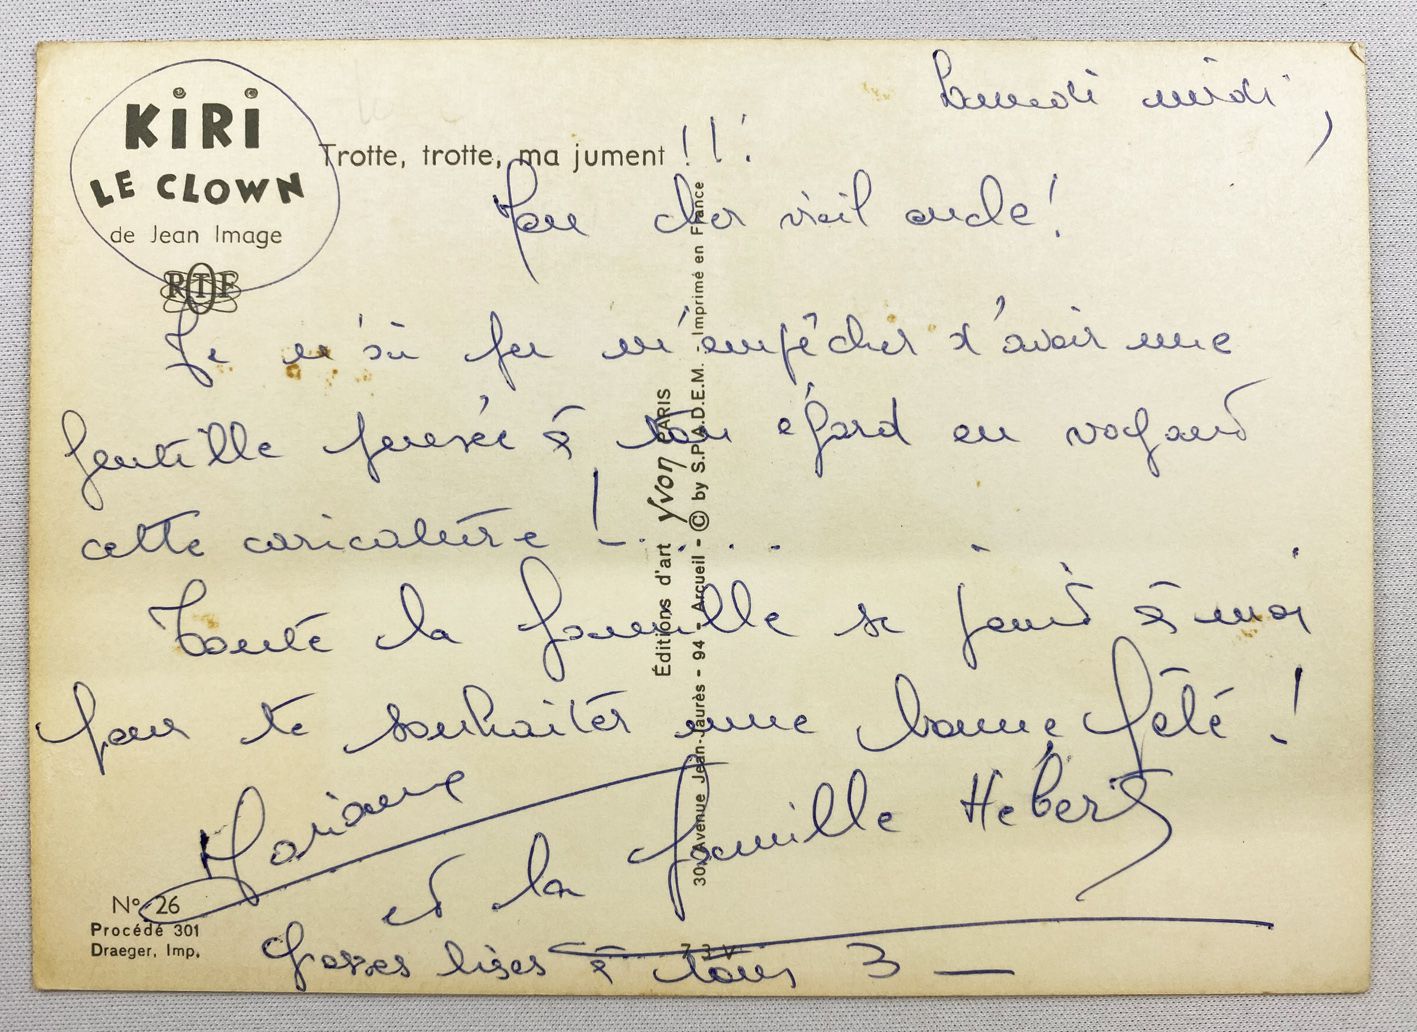 KiRi
LE CLOWN
de Jean Image
RTF
Trotte, trotte, ma jument !!!
Samedi midi,
Mon cher vieil oncle !
Je n'ai pu m'empêcher d'avoir une
gentille pensée à ton égard en voyant
cette caricature !.....
Toute la famille se joint à moi
pour te souhaiter une bonne fête !
Mariane
et la famille Hebert
Grosses bises à tous 3 —
N° 26
Procédé 301
Draeger, Imp.
7 3 V
Éditions d'art Yvon PARIS
30, Avenue Jean-Jaurès - 94 - Arcueil - © by S.P.A.D.E.M. - Imprimé en France